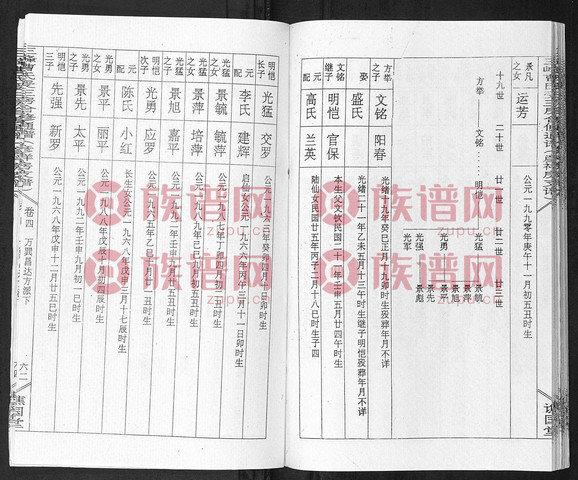 景凡之女 运芳 公元一九九零年庚午十一月初五丑时生
十九世 二十世 廿一世 廿二世 廿三世
方举 文铭 明恺 光猛 景毓
景萍
景旭
光勇 景平
景先
光强 景彪
光军
方举之子 文铭 阳春 光绪十九年癸巳正月十九卯时生殁葬年月不详
盛氏 光绪二十一年乙未五月十三午时生殁葬年月不详
文铭继子 明恺 官保 本生父文钦民国二十一年壬申五月廿四午时生
元配 高氏 兰英 陆仙女民国廿五年丙子二月十八巳时生子四
明恺长子 光猛 交罗 公元一九六三年癸卯四月
元配 李氏 建辉 启仙女公元一九六六年丙午三月十一日卯时生
光猛之女 景毓 毓萍 公元一九八七年丁卯四月初二
光猛之女 景萍 培萍 公元一九八九年
光猛之子 景旭 嘉平 公元一九九二年壬申
明恺次子 光勇 应罗 公元一九六五年乙巳十月廿二丑时生
元配 陈氏 小红 长生女公元一九六八年戊申三月十七辰时生
光勇之女 景平 丽平 公元一九八八年戊辰十月初四辰时生
光勇之子 景先 太平 公元一九九二年壬申九月初一巳时生
明恺三子 先强 新罗 公元一九六八年戊申十二月廿五巳时生
卷四 万巽昌达方源下 六二
族谱网
zupu.cn